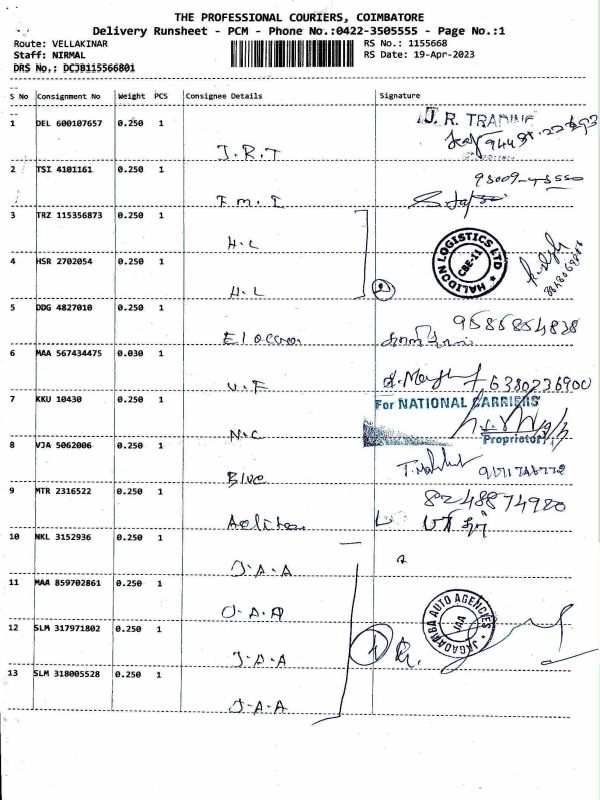 THE PROFESSIONAL COURIERS, COIMBATORE
Delivery Runsheet - PCM - Phone No.:0422-3505555 - Page No.:1
Route: VELLAKINAR
RS No.: 1155668
Staff: NIRMAL
RS Date: 19-Apr-2023
DRS No.: DCJB115566801
S No Consignment No Weight PCS Consignee Details Signature
1 DEL 600107657 0.250 1
J. R. TRADING
J.R.T
2 TSI 4101161 0.250 1
F.M.I
3 TRZ 115356873 0.250 1
H.L
4 HSR 2702054 0.250 1
HALIDON LOGISTICS LTD
CBE-11
H.L
5 DDG 4827010 0.250 1
9585854838
6 MAA 567434475 0.030 1
6380236900
V.F
7 KKU 10430 0.250 1
For NATIONAL CARRIERS
N.C
Proprietor
8 VJA 5062006 0.250 1
Blue
9 MTR 2316522 0.250 1
8248874920
10 NKL 3152936 0.250 1
J.A.A
11 MAA 859702861 0.250 1
J.A.A
JAGADAMBA AUTO AGENCIES
JAA
12 SLM 317971802 0.250 1
J.A.A
13 SLM 318005528 0.250 1
J.A.A